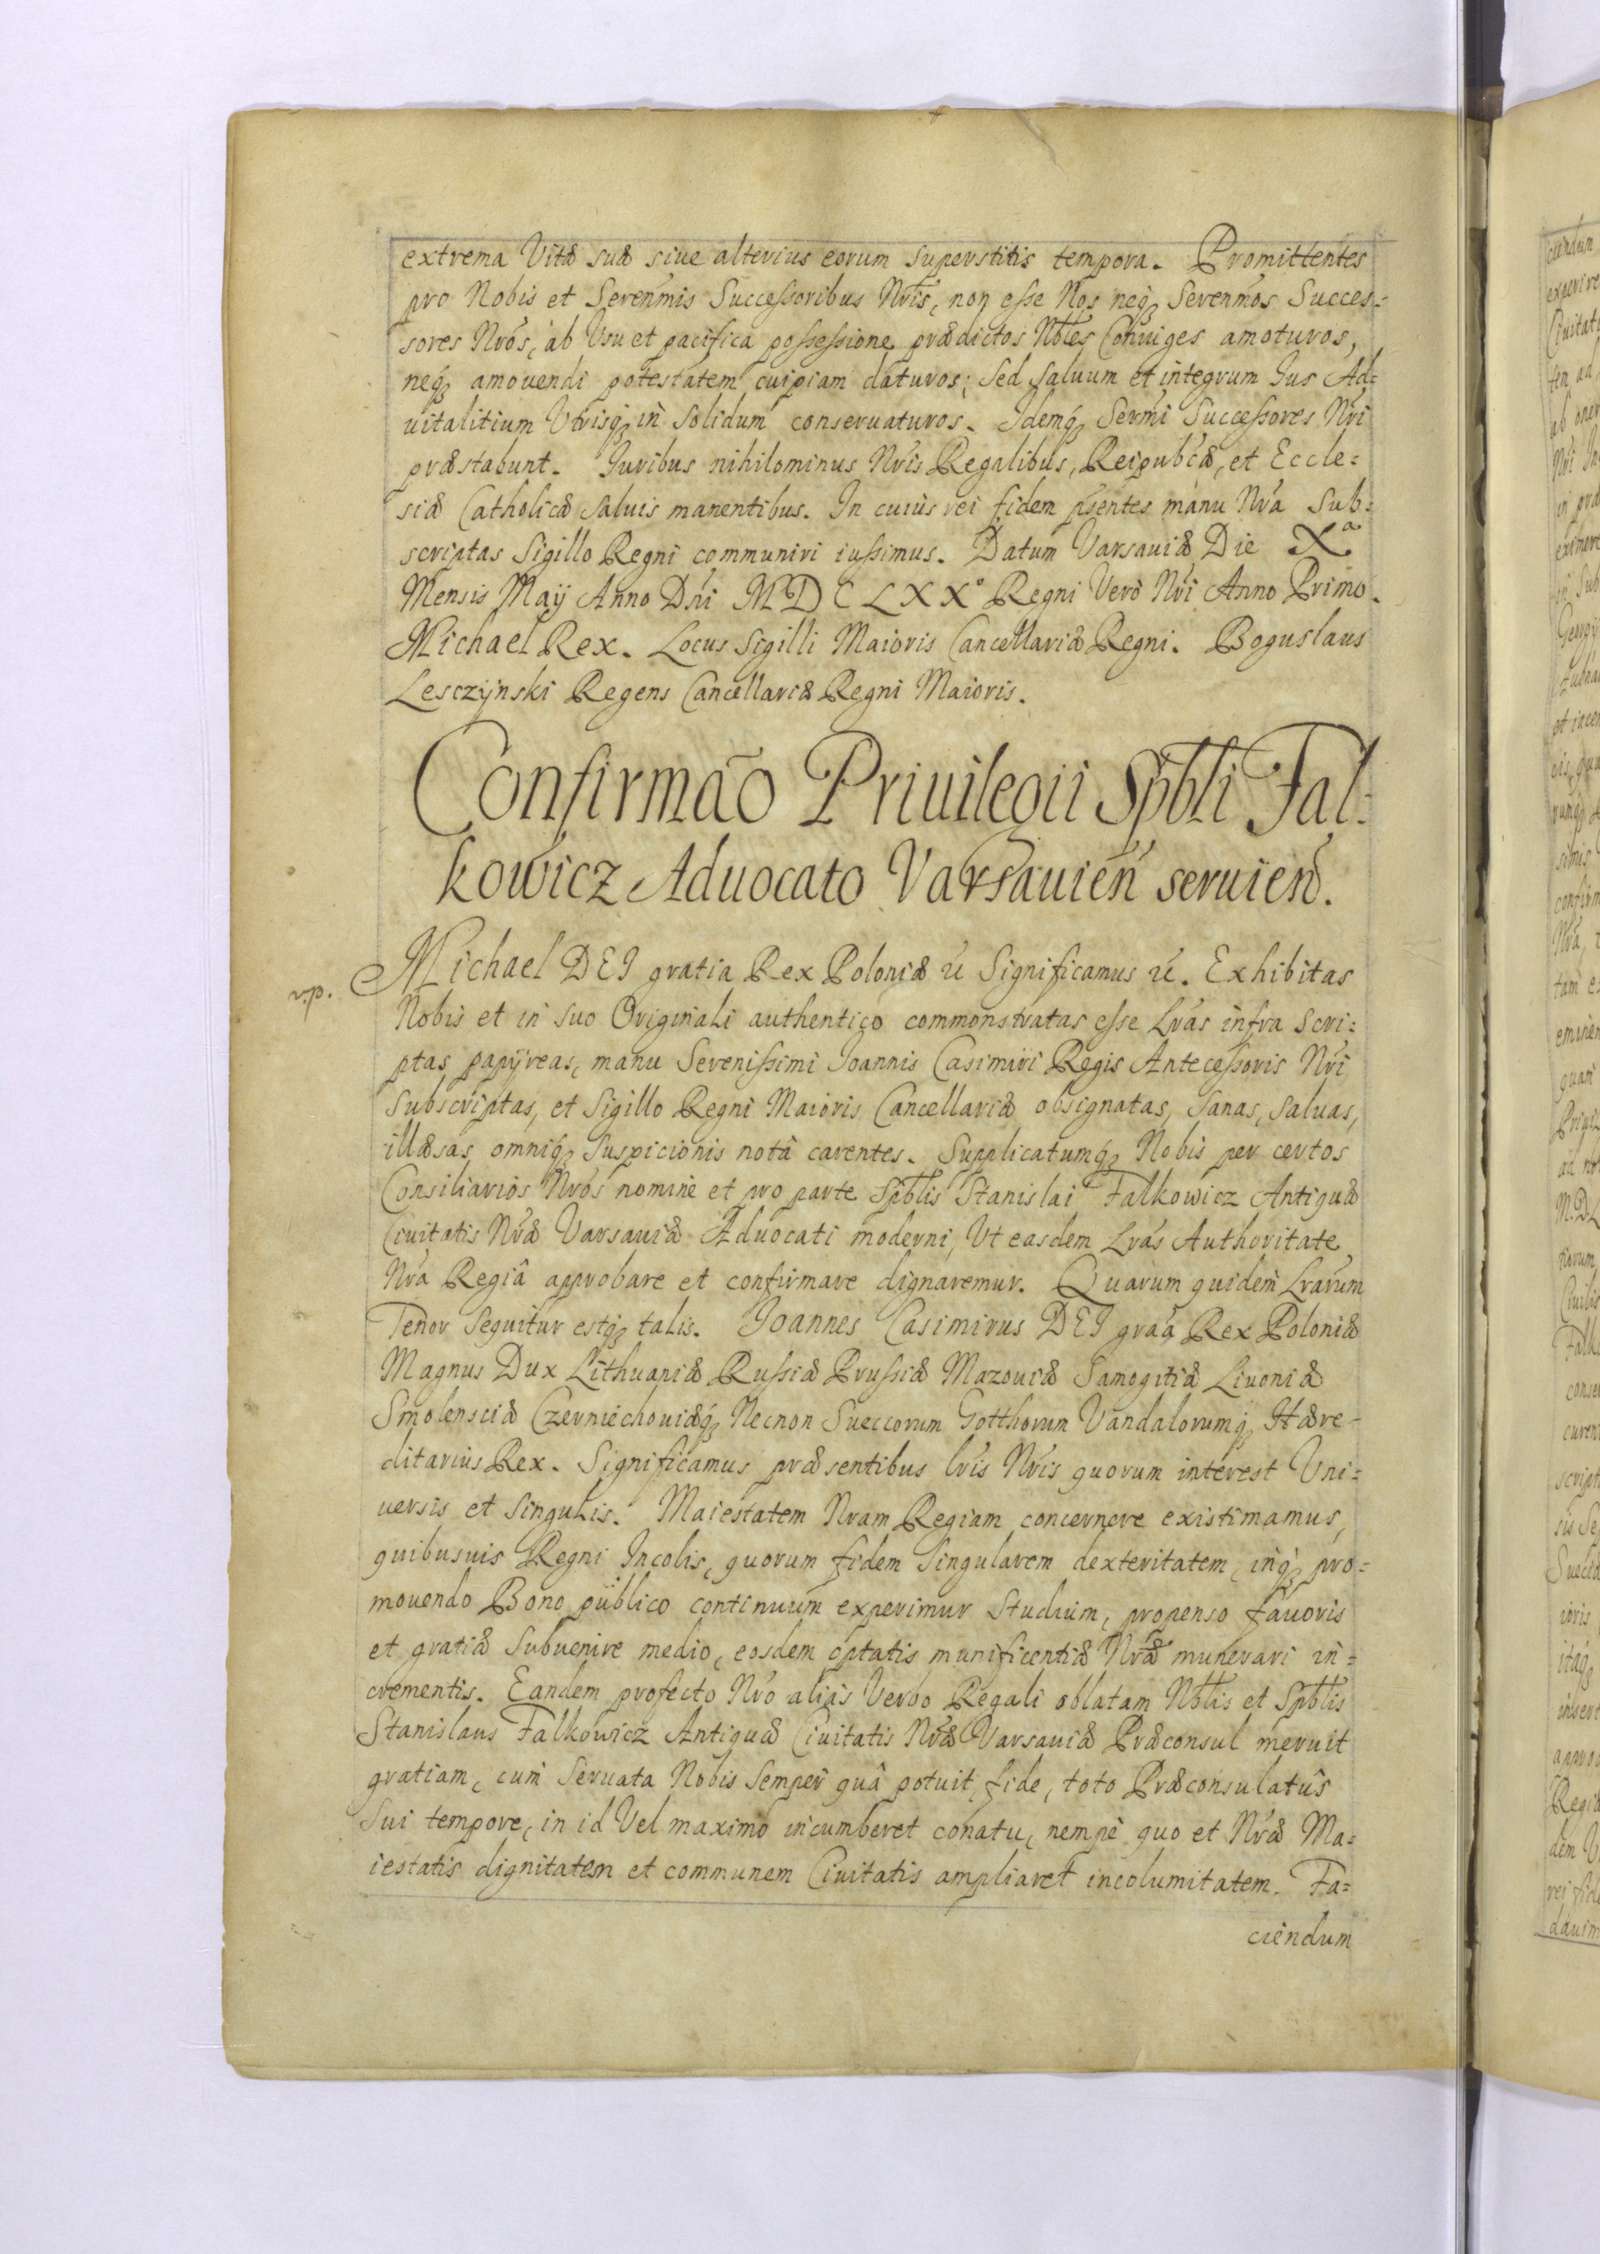 extrema Vitæ suæ siue alterius eorum superstitis tempora. Promittentes
pro Nobis et Serenmis Successoribus Nris, non esse Nos neq; Serenmos Succes=
sores Nros, ab Usu et pacifica possessione prædictos Nbles Coniuges amoturos,
neq; amouendi potestatem cuipiam daturos; Sed Saluum et integrum Ius Ad=
uitalitium Utrisq; in Solidum conseruaturos. Idemq; Sermi Successores Nri
præstabunt. Iuribus nihilominus Nris Regalibus, Reipubcæ, et Eccle=
siæ Catholicæ saluis manentibus. In cuius rei fidem pśentes manu Nra Sub=
scriptas Sigillo Regni communiri iussimus. Datum Varsauiæ Die Xa
Mensis Maÿ Anno Dni MDCLXXo Regni Verò Nri Anno Primo.
Michael Rex. Locus Sigilli Maioris Cancellariæ Regni. Boguslaus
Lesczÿnski Regens Cancellariæ Regni Maioris.
Confirmão Priuilegii Spbli Fal=
kowicz Aduocato Varsauien seruien.
Michael DEI gratia Rex Poloniæ &c Significamus &c. Exhibitas
v.p.
Nobis et in suo Originali authentico commonstratas esse Lras infra Scri=
ptas papÿreas, manu Serenissimi Ioannis Casimiri Regis Antecessoris Nri
Subscriptas, et Sigillo Regni Maioris Cancellariæ obsignatas, Sanas, Saluas,
illæsas, omniq; Suspicionis notâ carentes. Supplicatumq; Nobis per certos
Consiliarios Nros nomine et pro parte Spblis Stanislai Falkowicz Antiquæ
Ciuitatis Nræ Varsauiæ Aduocati moderni, Ut easdem Lras Authoritate
Nra Regiâ approbare et confirmare dignaremur. Quarum quidem Lrarum
Tenor Sequitur estq; talis. Ioannes Casimirus DEI graa Rex Poloniæ
Magnus Dux Lithuaniæ Russiæ Prussiæ Mazouiæ Samogitiæ Liuoniæ
Smolensciæ Czerniechouiæq; Necnon Sueccorum Gotthorum Vandalorumq; Hære-
ditarius Rex. Significamus præsentibus lris Nris quorum interest Uni=
uersis et Singulis. Maiestatem Nram Regiam concernere existimamus,
quibusuis Regni Incolis, quorum fidem Singularem dexteritatem, inq; pro=
mouendo Bono publico continuum experimur Studium, propenso fauoris
et gratiæ Subuenire medio, eosdem optatis munificentiæ Nræ munerari in=
crementis. Eandem profecto Nro aliàs Verbo Regali oblatam Nblis et Spblis
Stanislaus Falkowicz Antiquæ Ciuitatis Nræ Varsauiæ Præconsul meruit
gratiam, cum Seruata Nobis Semper quâ potuit fide, toto Præconsulatûs
Sui tempore, in id Vel maximo incumberet conatu, nempè quo et Nræ Ma=
iestatis dignitatem et communem Ciuitatis ampliaret incolumitatem. Fa=
ciendum